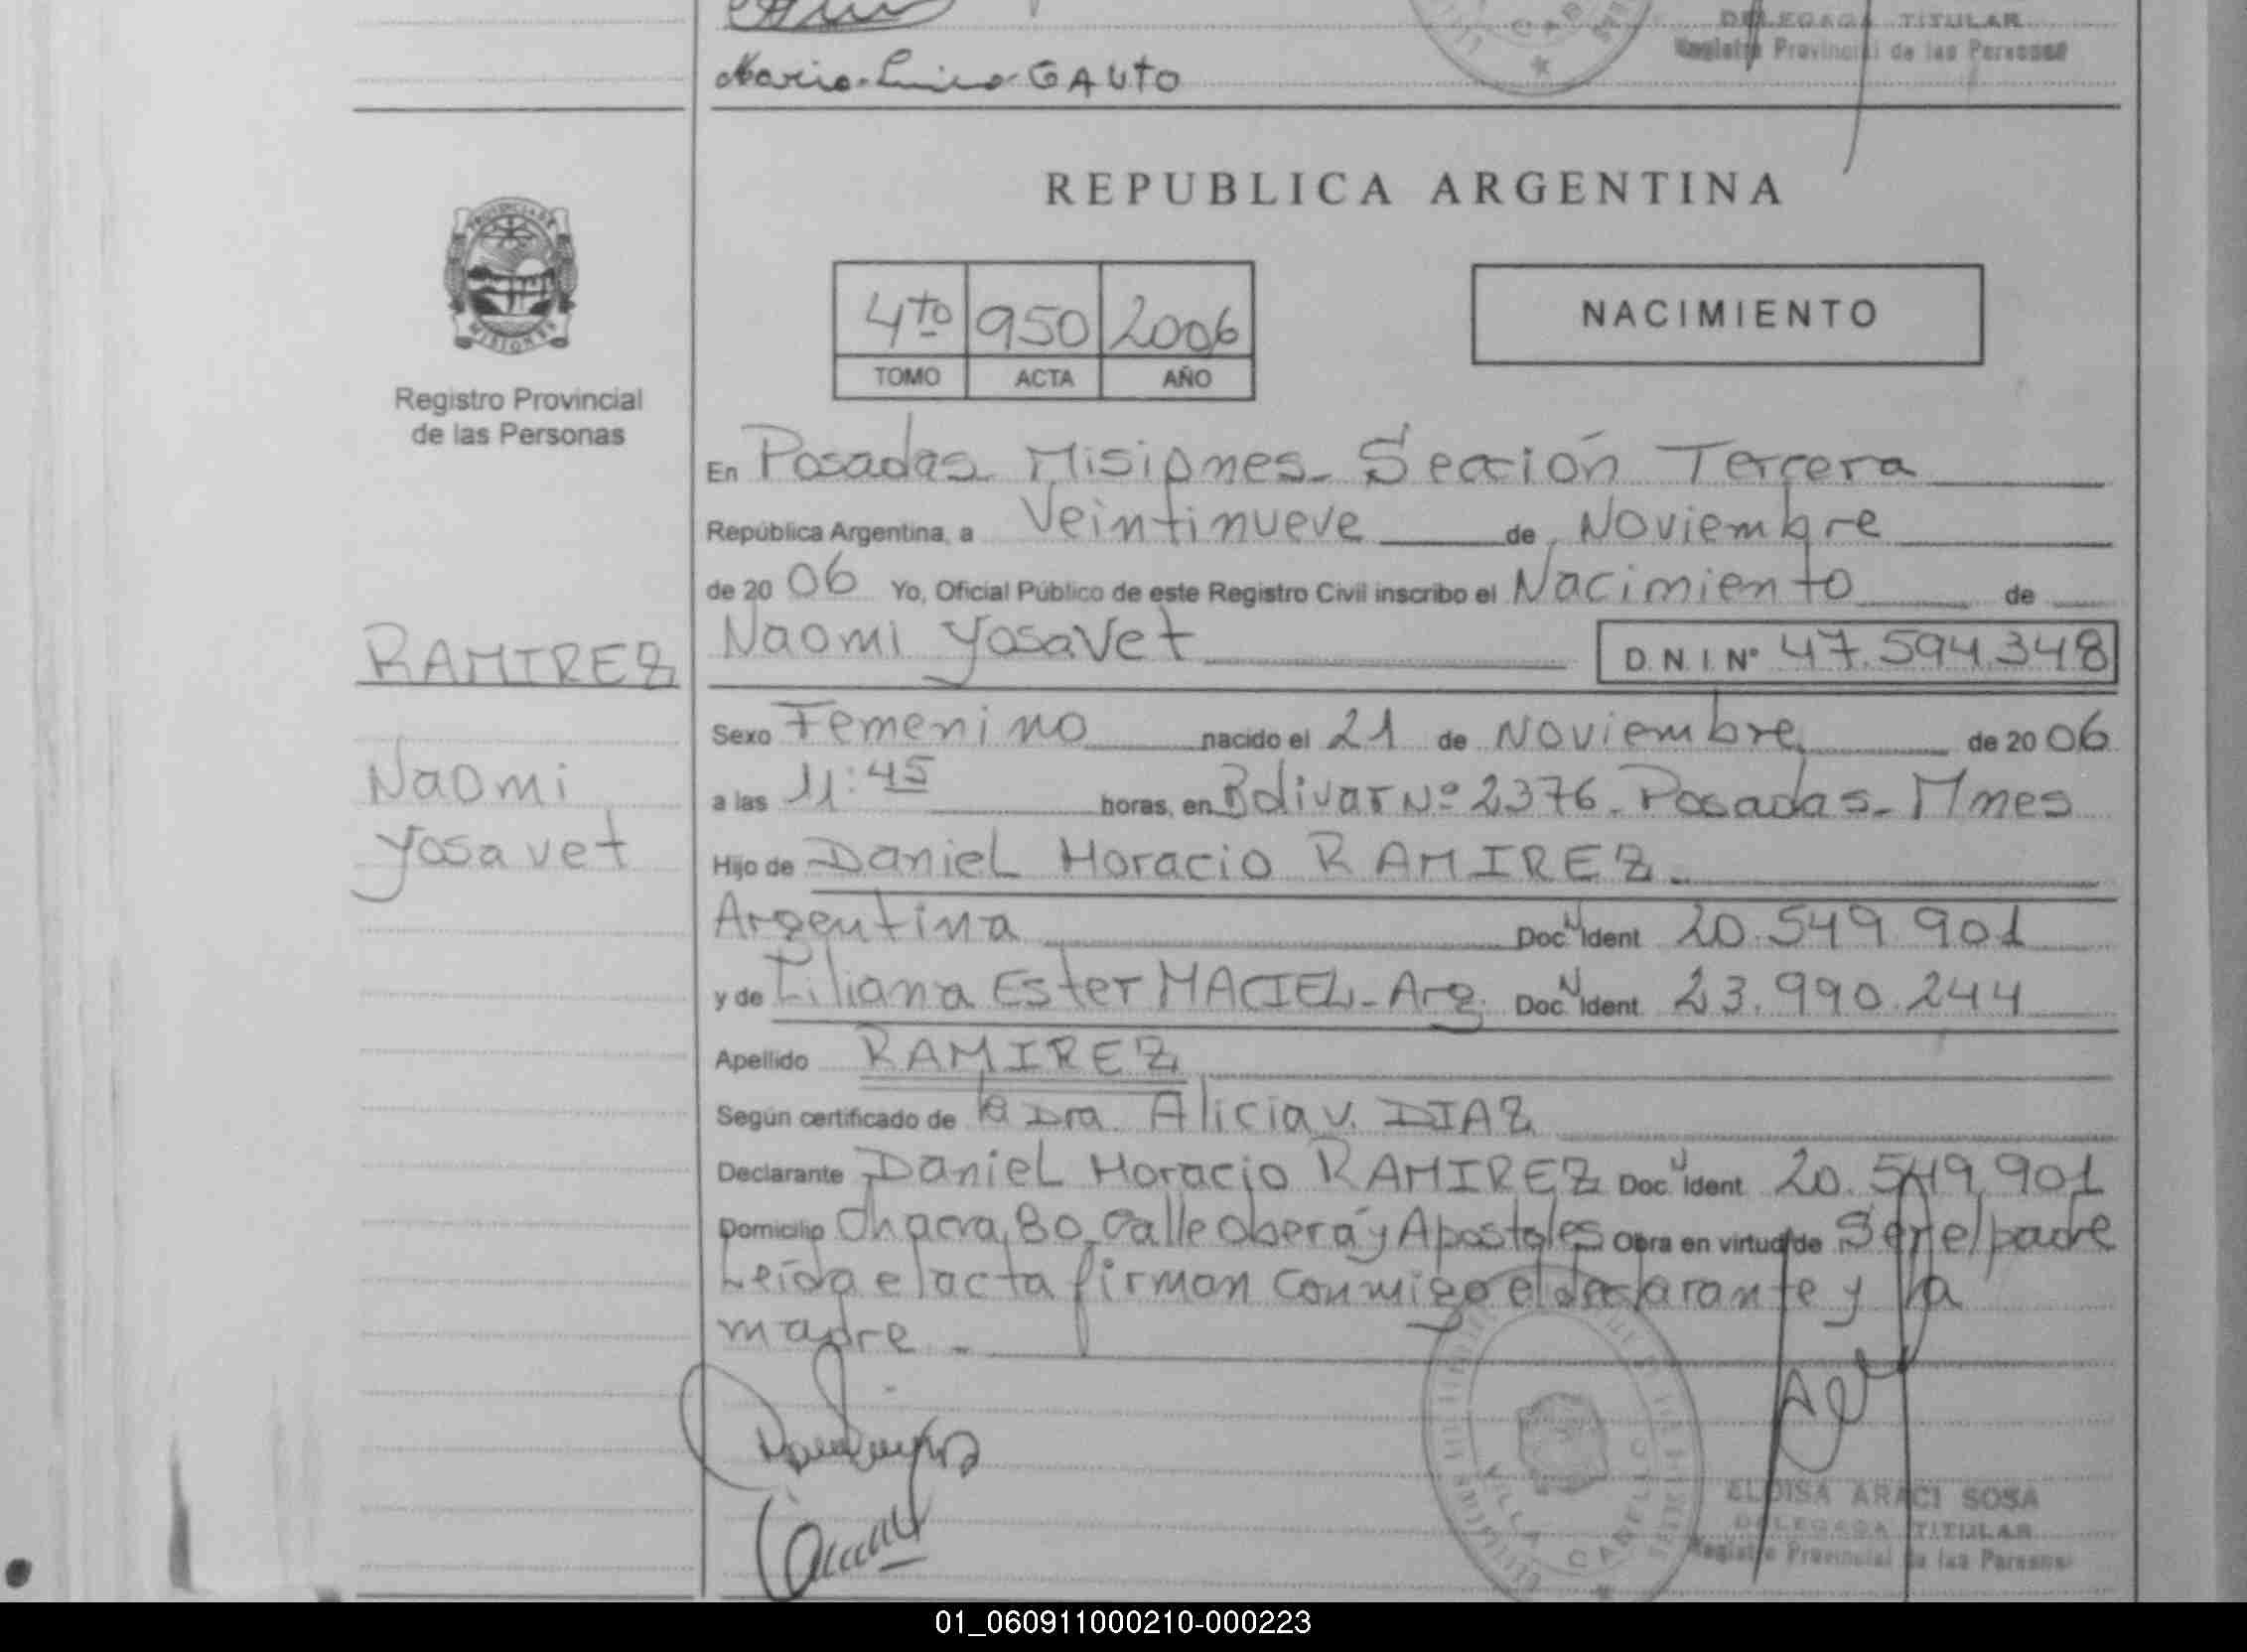 DELEGADA TITULAR
Registro Provincial de las Personas
GAUTO
REPUBLICA ARGENTINA
PROVINCIA DE
MISIONES
Registro Provincial
de las Personas
4to 950 2006
TOMO ACTA AÑO
NACIMIENTO
En Posadas Misiones- Sección Tercera
República Argentina, a Veintinueve de Noviembre
de 20 06 Yo, Oficial Público de este Registro Civil inscribo el Nacimiento de
Naomi Yosavet D.N.I. Nº 47.594.348
RAMIREZ
Naomi
Yosavet
Sexo Femenino nacido el 21 de Noviembre de 20 06
a las 11:45 horas, en Bolivar Nº 2376- Posadas- Mnes
Hijo de Daniel Horacio RAMIREZ-
Argentina Doc. N Ident 20.549.901
y de Liliana Ester MACIEL- Arg. Doc. N Ident. 23.990.244
Apellido RAMIREZ
Según certificado de la Dra. Alicia V. DIAZ
Declarante Daniel Horacio RAMIREZ Doc. N Ident 20.549.901
Domicilio Chacra 80 Calle Oberá y Apostoles Obra en virtud de Ser el padre
Leída el acta firman conmigo el declarante y la
madre -
VILLA CABELLO
ELOISA ARACI SOSA
DELEGADA TITULAR
Registro Provincial de las Personas
01_060911000210-000223